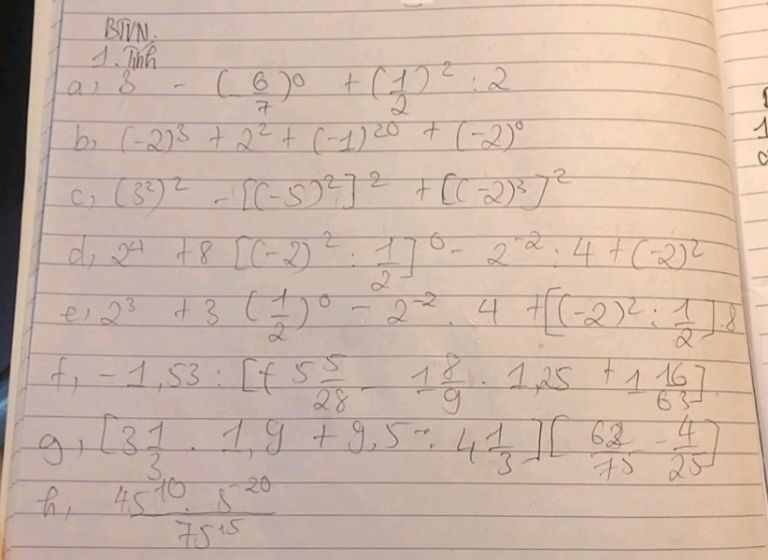 BTVN.
1. Tính
a, 3 - (-6/7)^0 + (1/2)^2 : 2
b, (-2)^3 + 2^2 + (-1)^20 + (-2)^0
c, (3^2)^2 - [(-5)^2]^2 + [(-2)^3]^2
d, 2^4 + 8 [(-2)^2 : 1/2]^0 - 2^-2 : 4 + (-2)^2
e, 2^3 + 3 (1/2)^0 - 2^-2 . 4 + [(-2)^2 : 1/2] . 8
f, -1,53 : [ 5 5/28 - 1 8/9 . 1,25 + 1 16/63 ]
g, [3 1/3 . 1,9 + 9,5 : 4 1/3] [ 62/75 - 4/25 ]
h, 45^10 . 5^20 / 75^15